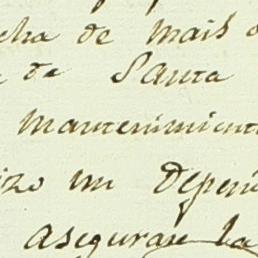 cha de mais
de Santa
mantenimient
izo un Depen
asegurase la